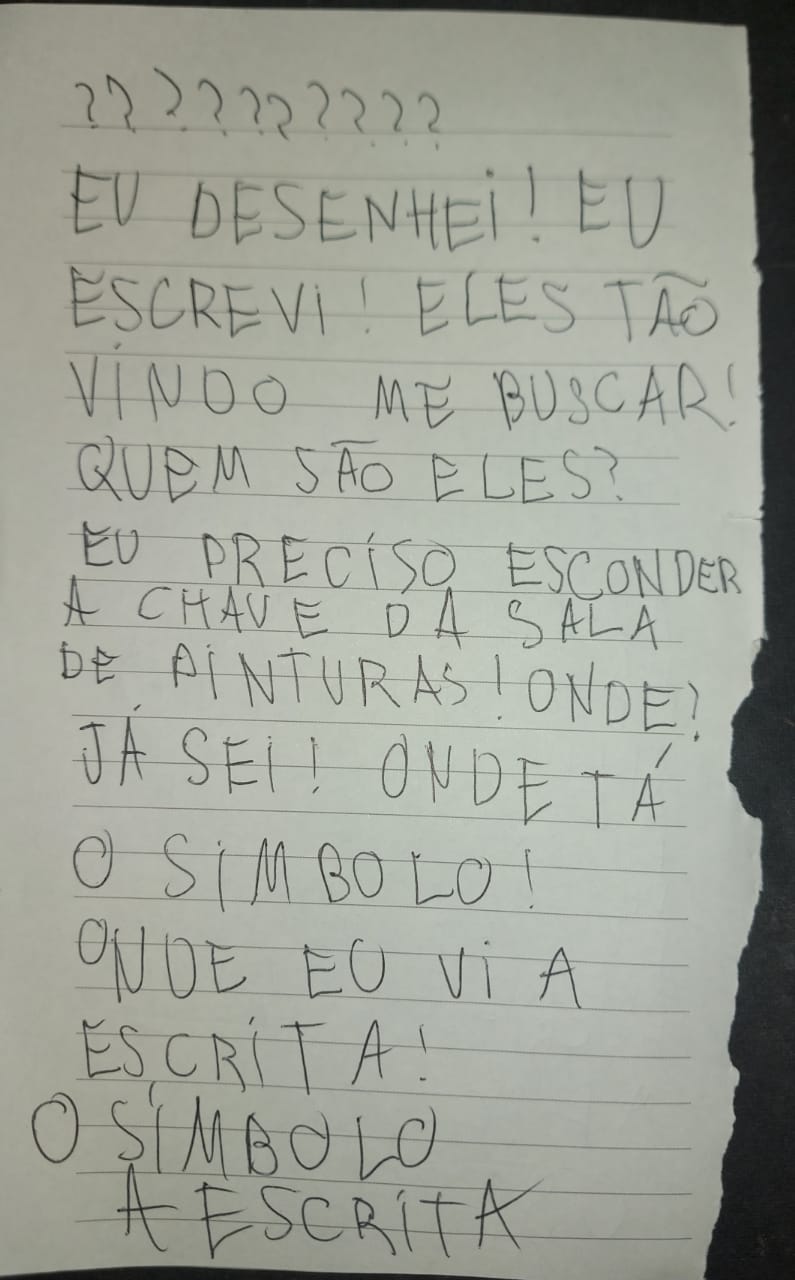 ??????????
EU DESENHEI! EU
ESCREVI! ELES TÃO
VINDO ME BUSCAR!
QUEM SÃO ELES?
EU PRECISO ESCONDER
A CHAVE DA SALA
DE PINTURAS! ONDE?
JÁ SEI! ONDE TÁ
O SIMBOLO!
ONDE EU VI A
ESCRITA!
O SÍMBOLO
A ESCRITA